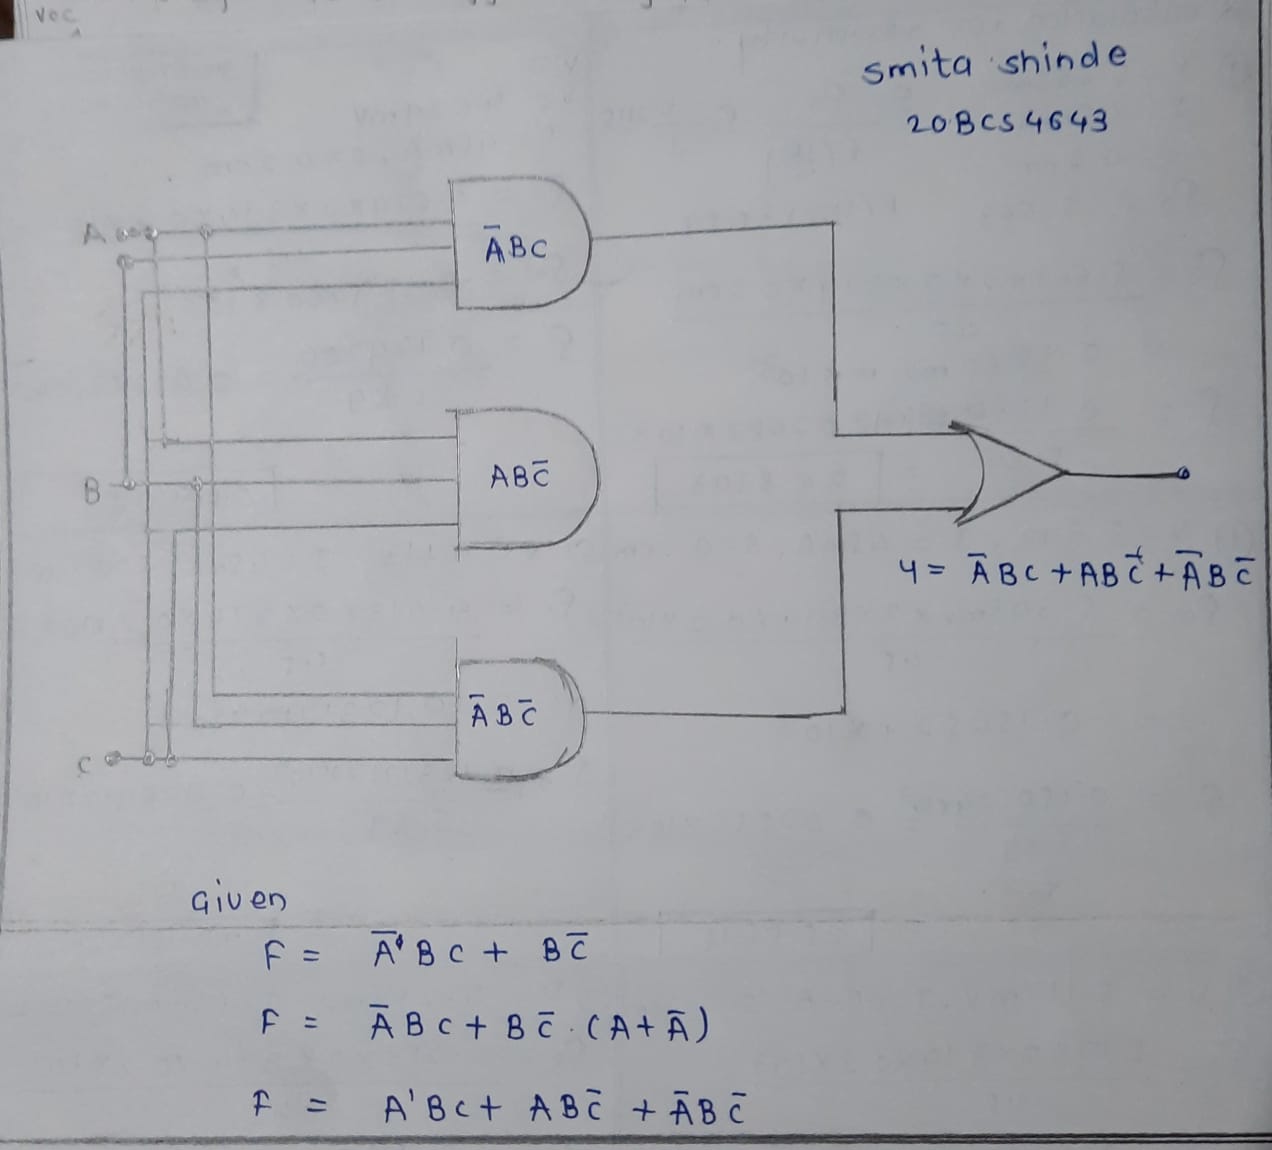 VOC
smita shinde
20BCS4643
A
A̅BC
B
ABC̅
Y = A̅BC + ABC̅ + A̅BC̅
A̅BC̅
C
Given
F = A̅'BC + BC̅
F = A̅BC + BC̅.(A+A̅)
F = A'BC + ABC̅ + A̅BC̅